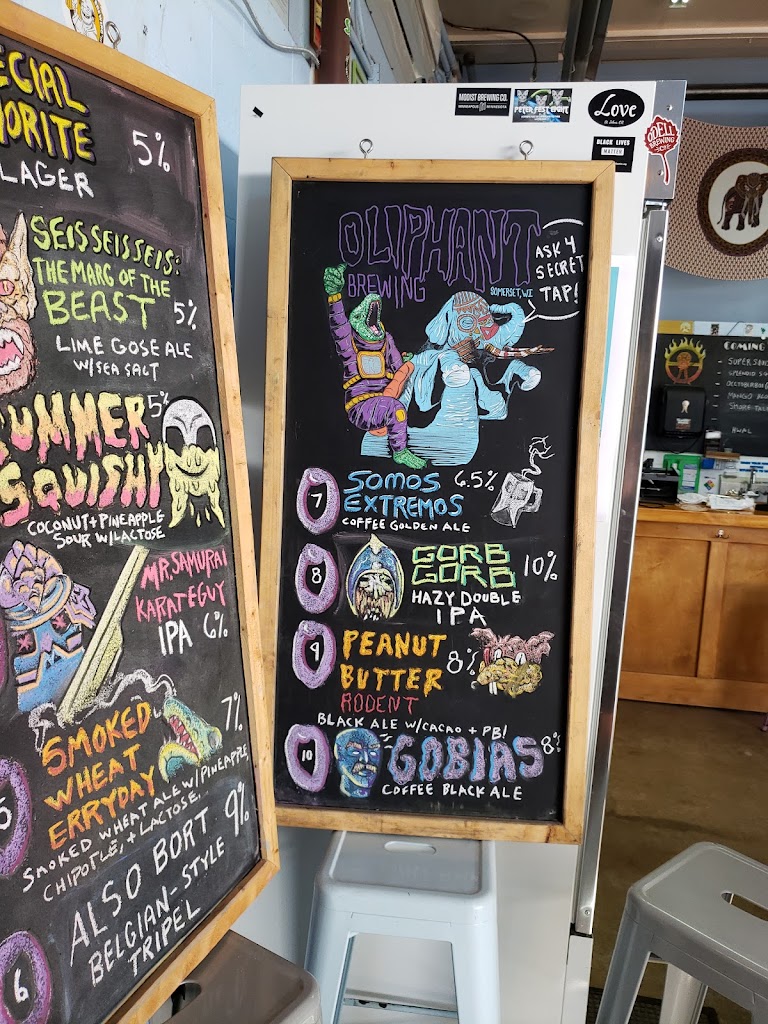 ECIAL
ORITE
LAGER
5%
SEIS SEIS SEIS:
THE MARG OF THE
BEAST
5%
LIME GOSE ALE
W/SEA SALT
UMMER
SQUISHY
5%
COCONUT + PINEAPPLE
SOUR W/LACTOSE
MR. SAMURAI
KARATEGUY
IPA 6%
SMOKED
WHEAT
ERRYDAY
7%
SMOKED WHEAT ALE W/ PINEAPPLE,
CHIPOTLE, + LACTOSE.
ALSO BORT
9%
BELGIAN-STYLE
TRIPEL
6
OLIPHANT
BREWING
SOMERSET, WI
ASK 4
SECRET
TAP!
7
SOMOS
EXTREMOS
6.5%
COFFEE GOLDEN ALE
8
GORB
GORB
10%
HAZY DOUBLE
IPA
9
PEANUT
BUTTER
RODENT
8%
BLACK ALE W/CACAO + PB!
10
GOBIAS
8%
COFFEE BLACK ALE
MODIST BREWING CO.
MINNEAPOLIS MINNESOTA
PETER FEST EIGHT
Love
BLACK LIVES
MATTER
ODELL
BREWING
COMING